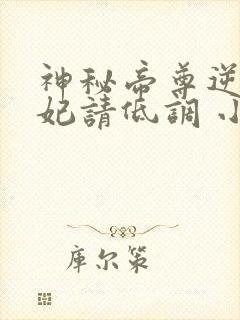 神秘帝尊逆
妃請低調 小
库尔策